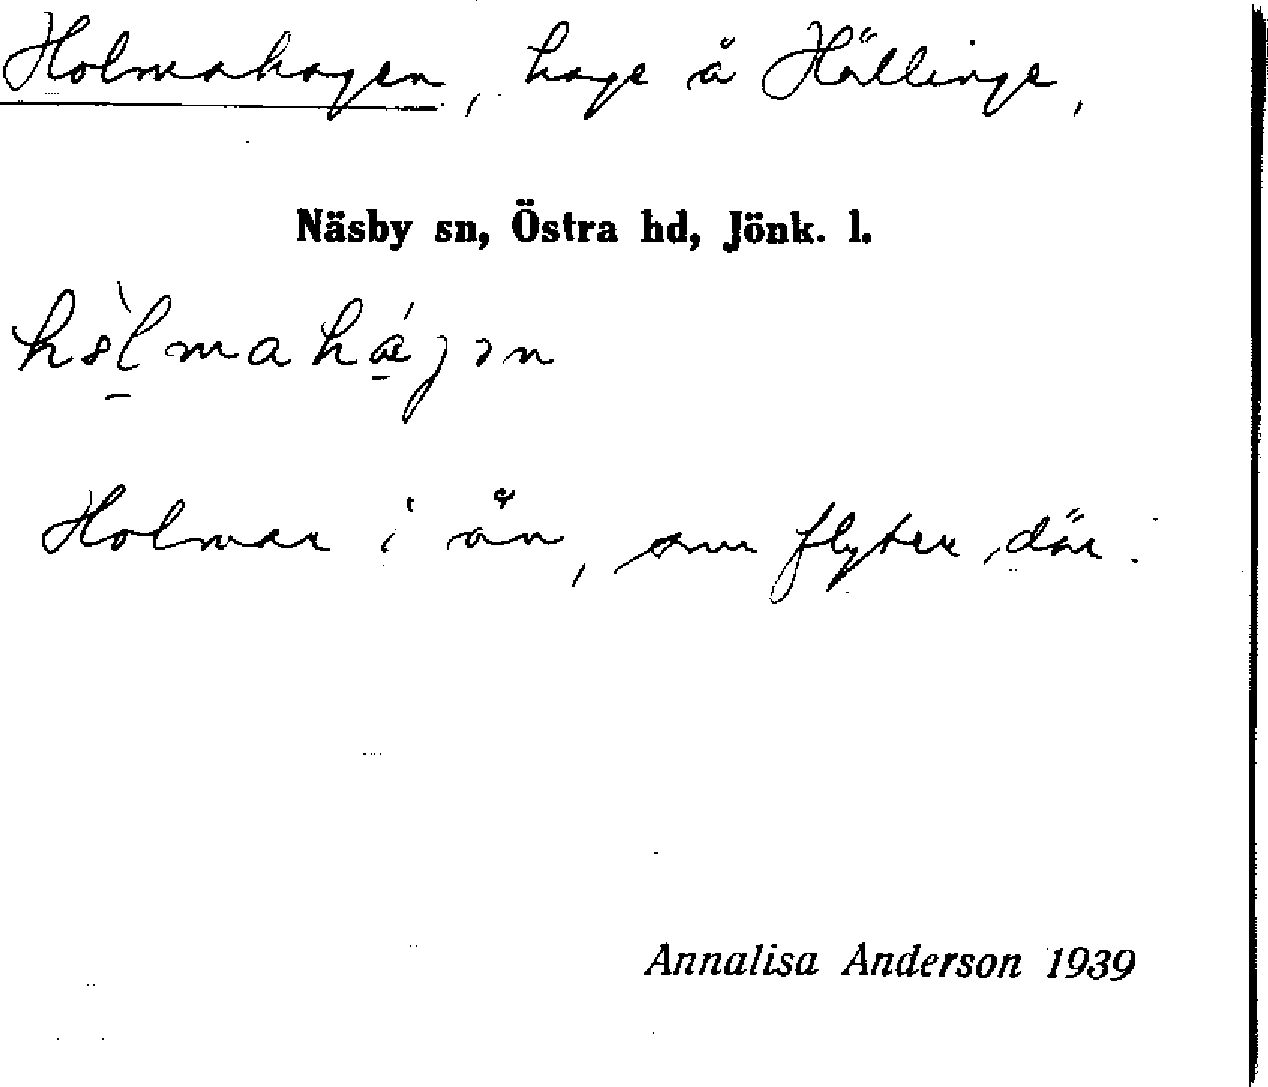 Holmahagen, hage å Hällinge,
Näsby sn, Östra hd, Jönk. l.
Holmar i ån, som flyter där.
Annalisa Anderson 1939